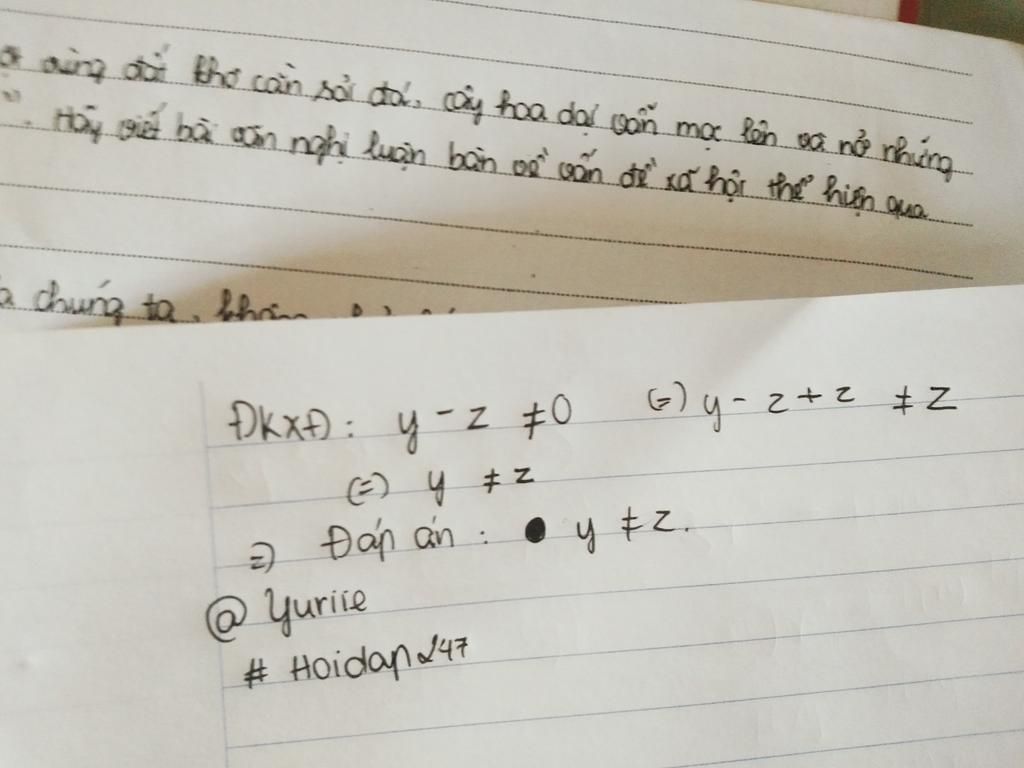 vùng đất khô cằn sỏi đá, cây hoa dại vẫn mọc lên và nở những
. Hãy viết bài văn nghị luận bàn về vấn đề xã hội thể hiện qua
chúng ta,
ĐKXĐ: y - z ≠ 0 (=) y - z + z ≠ z
(=) y ≠ z
=) Đáp án : y ≠ z.
@ Yuriie
# Hoidap247